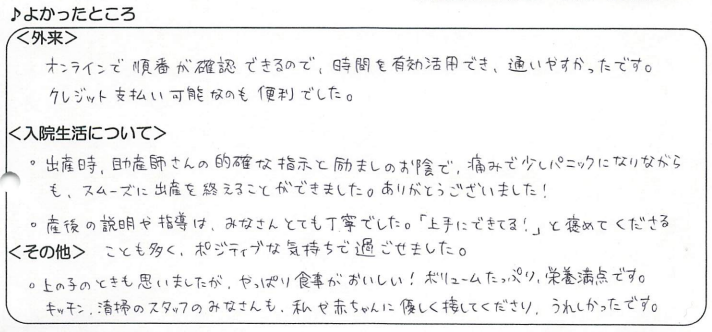 ♪よかったところ
<外来>
オンラインで順番が確認できるので、時間を有効活用でき、通いやすかったです。
クレジット支払い可能なのも便利でした。
<入院生活について>
◦出産時、助産師さんの的確な指示と励ましのお陰で、痛みで少しパニックになりながら
も、スムーズに出産を終えることができました。ありがとうございました！
◦産後の説明や指導は、みなさんとても丁寧でした。「上手にできてる！」と褒めてくださる
<その他> ことも多く、ポジティブな気持ちで過ごせました。
◦上の子のときも思いましたが、やっぱり食事がおいしい！ボリュームたっぷり、栄養満点です。
キッチン、清掃のスタッフのみなさんも、私や赤ちゃんに優しく接してくださり、うれしかったです。